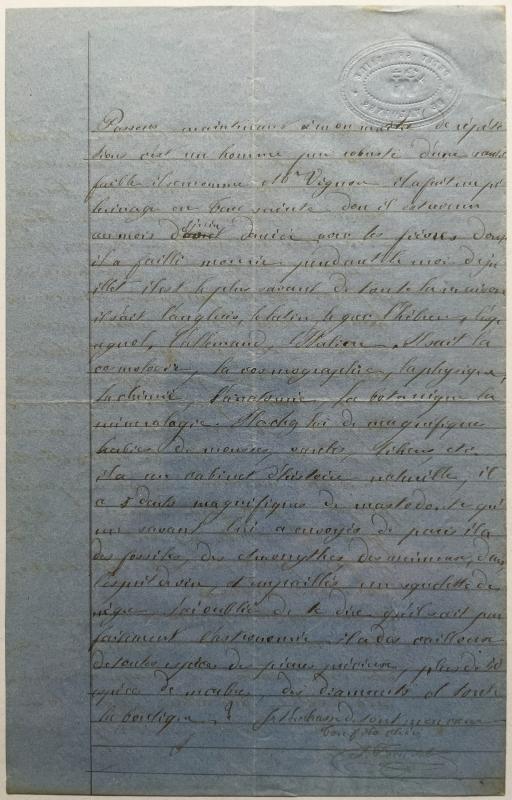 Passons maintenant à mon maître de répéti
tions c'est un homme peu robuste d'une santé
faible il se nomme Mr Vignon il a fait un pé
lerinage en terre sainte don il est revenu
au mois d' dernier avec les fièvres dont
il a failli mourir pendant le mois de ju
illet il est le plus savant de toute la maison
il sait l'anglais, le latin, le grec l'hébreu, l'esp
agnol, l'allemand, l'Italien. Il sait la
la cosmographie, la physique,
la chimie, l'anatomie, la botanique la
minéralogie. Il a chez lui de magnifiques
herbiers de mousses, plantes, lichens etc.
il a un cabinet d'histoire naturelle, il
a 5 dents magnifiques de mastodonte qu'
un savant lui a envoyés de paris il a
des fossiles, des des animaux, dans
l'esprit de vin et empaillés un squelette de
nègre. J'ai oublié de te dire qu'il sait par
faitement l'astronomie il a des cailloux
de toutes espèces des pierres précieuses, plus de
espèces de marbres, des diamants et toute
la boutique. Je t'embrasse de tout mon coeur
ton